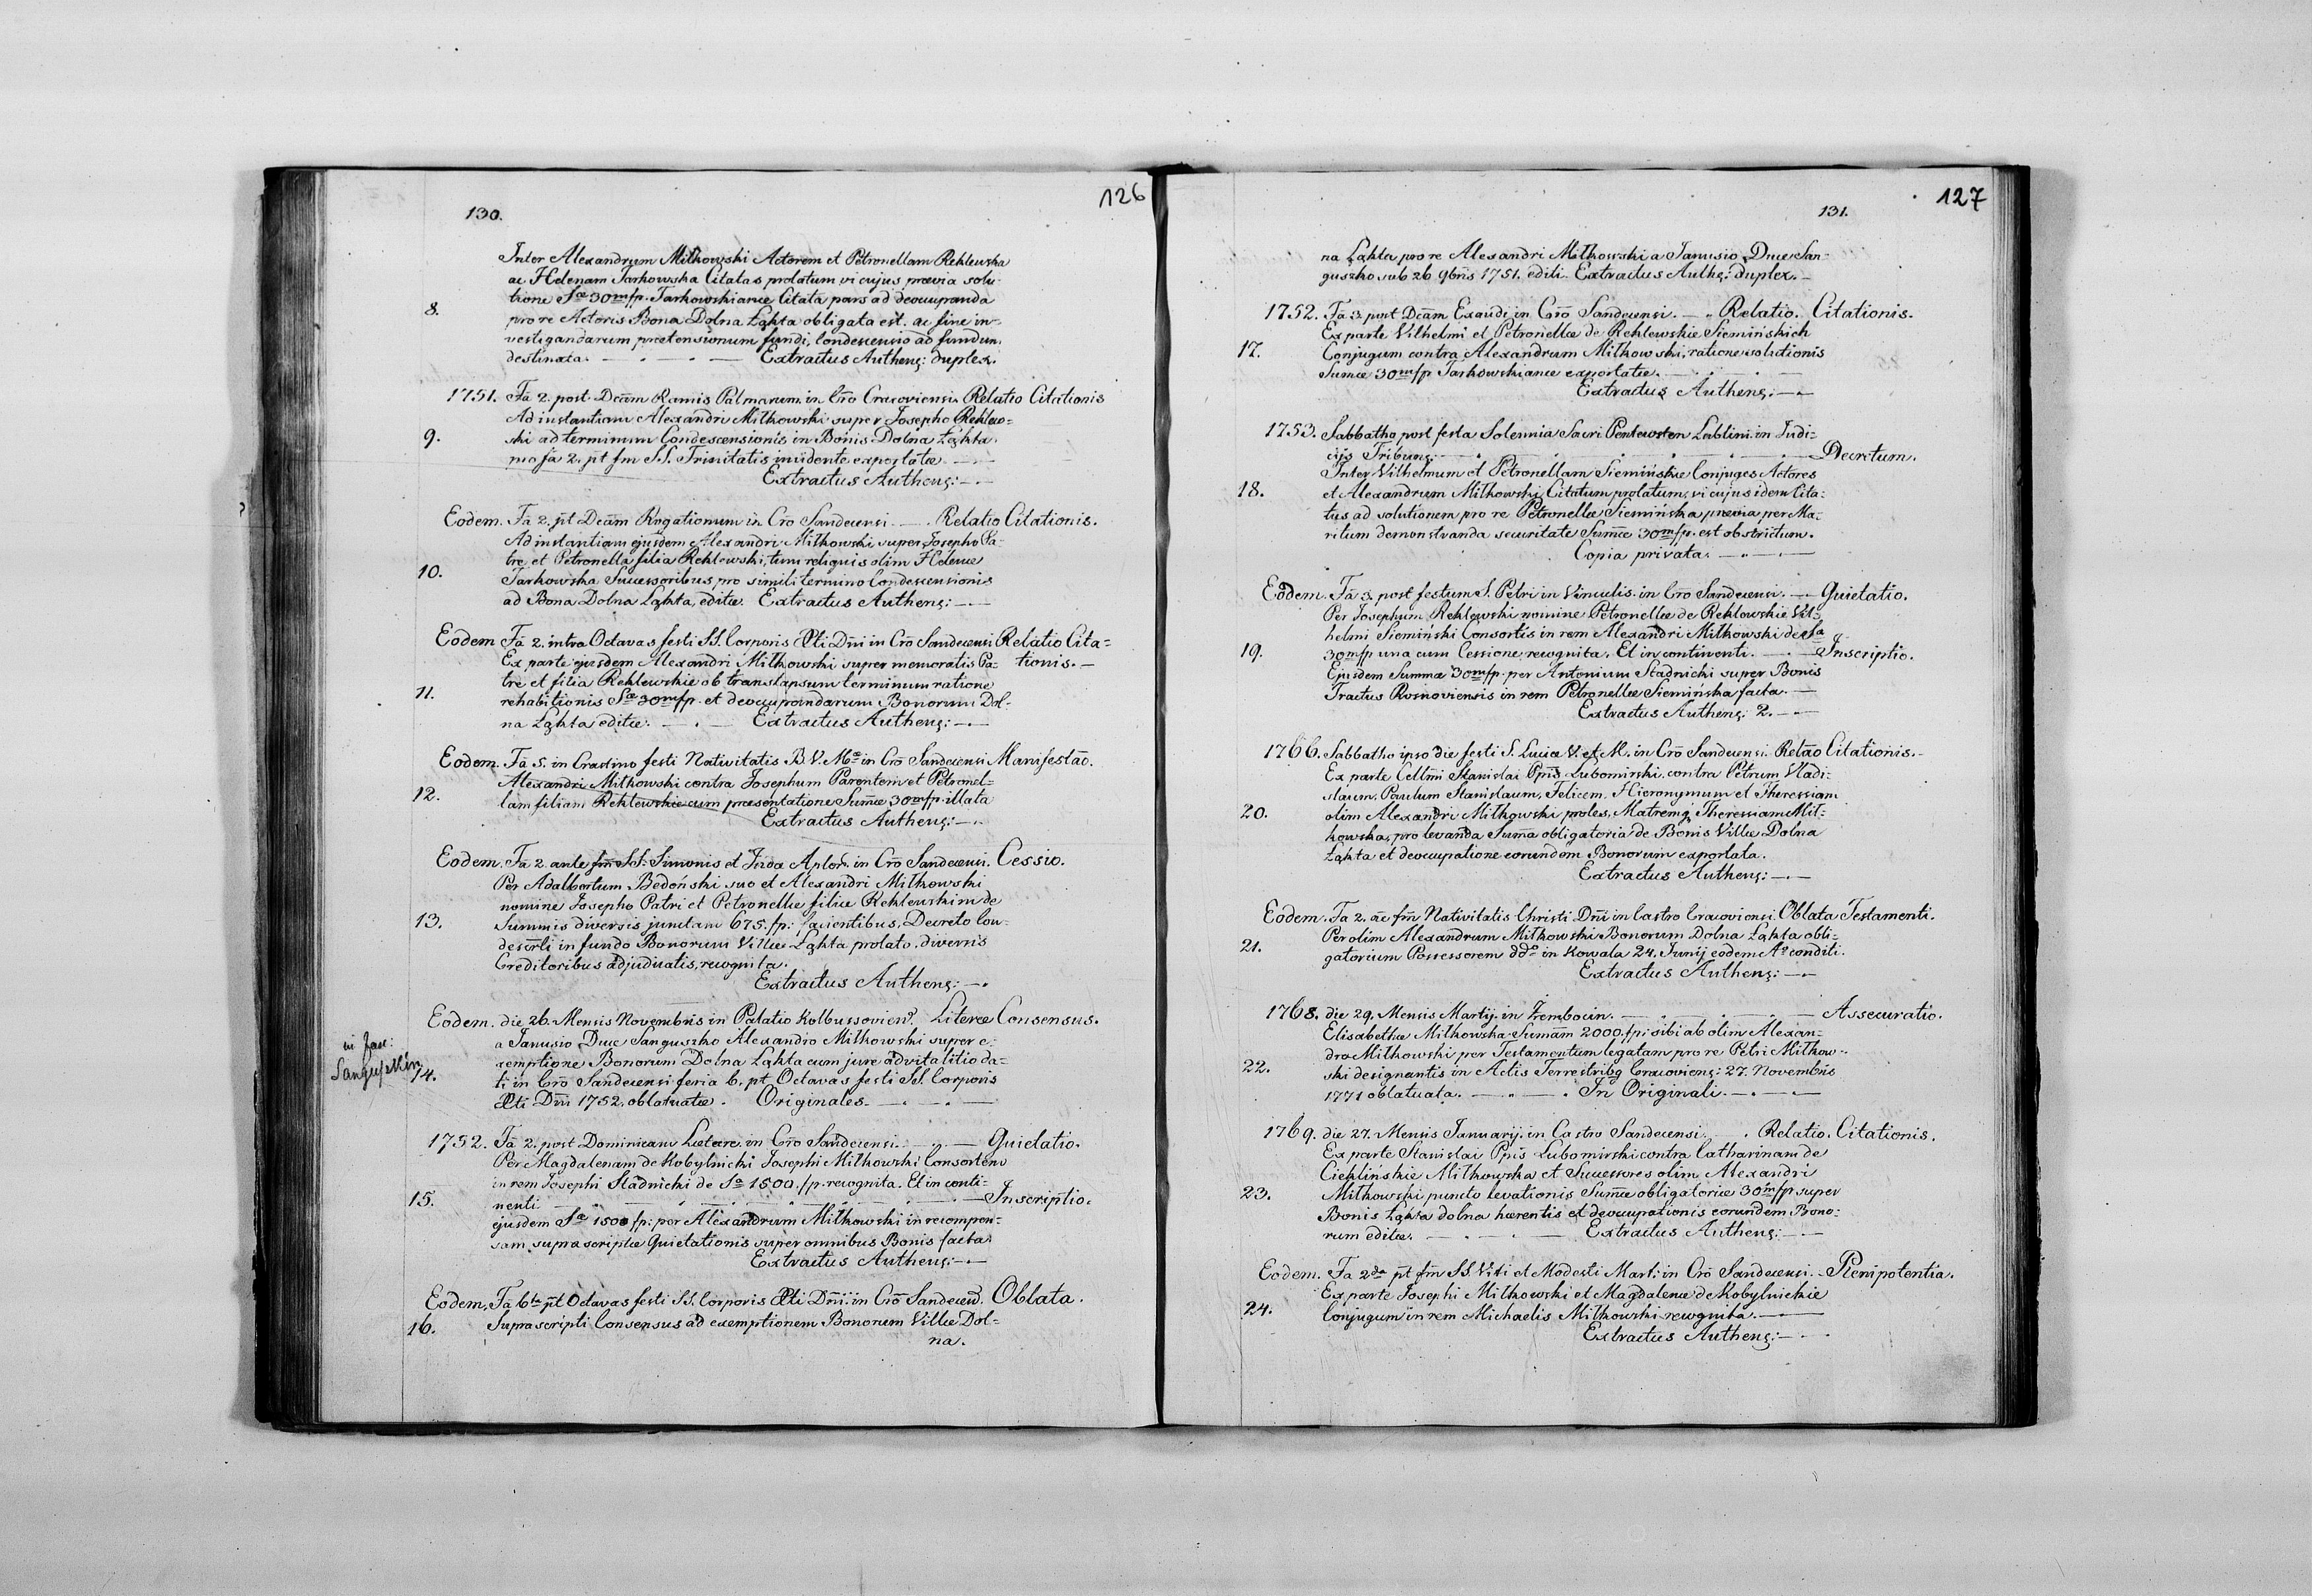 126
130.
Inter Alexandrum Miłkowski Actorem et Petronellam Rekłewska
ac Helenam Tarkowska Citatas prolatum vi cujus prævia solu-
tione Sæ 30m fp. Tarkowskianæ Citata pars ad deoccupanda
8. pro re Actoris Bona Dolna Łąkta obligata est. ac fine in-
vestigandarum prætensionum fundi, Condescensio ad fundum
destinata. Extractus Authens: duplex.
1751. Fã 2. post Dcãm Ramis Palmarum in Crõ Cracoviensi Relatio Citationis
Ad instantiam Alexandri Miłkowski super Josepho Reklew=
9. ski ad terminum Condescensionis in Bonis Dolna Łąkta
pro fã 2. pt fm S.S. Trinitatis incidente exportatæ
Extractus Authens:
Eodem. Fã 2. pt Dcãm Rogationum in Crõ Sandecensi Relatio Citationis.
Ad instantiam ejusdem Alexandri Miłkowski super Josepho Pa-
tre et Petronella filia Reklewski, tum reliquis olim Helenæ
10. Tarkowska Successoribus pro simili termino Condescensionis
ad Bona Dolna Łąkta, editæ. Extractus Authens:
Eodem Fã 2. intra Octavas festi S.S. Corporis Xti Dni in Crõ Sandecensi Relatio Cita=
Ex parte ejusdem Alexandri Miłkowski super memoratis Pa- tionis.
tre et filia Reklewskie ob translapsum terminum ratione
11. rehabitionis Sæ 30m fp. et deoccupandarum Bonorum Dol-
na Łąkta editæ. Extractus Authens:
Eodem. Fã 5. in Crastino festi Nativitatis B.V.Mæ in Crõ Sandecensi Manifestão.
Alexandri Miłkowski contra Josephum Parentem et Petronel-
12. lam filiam Reklewskie cum præsentatione Sumæ 30m fp. illata
Extractus Authens:
Eodem. Fã 2. ante fm S.S. Simonis et Juda Aplor. in Crõ Sandecensi. Cessio.
Per Adalbertum Bedoński suo et Alexandri Miłkowski
nomine Josepho Patri et Petronellæ filiæ Reklewskim de
13. Summis diversis junctam 675. fp: facientibus, Decreto Con-
descrli in fundo Bonorum Villæ Łąkta prolato, diversis
Creditoribus adjudicatis, recognita.
Extractus Authens:
Eodem. die 26. Mensis Novembris in Palatio Kolbussovien. Literæ Consensus.
in fasc:
a Janusio Duce Sanguszko Alexandro Miłkowski super e-
xemptione Bonorum Dolna Łąkta cum jure advitalitio da-
14. ti in Crõ Sandecensi feria 6. pt Octavas festi S.S. Corporis
Xti Dni 1752. oblatuatæ. Originales.
1752. Fã 2. post Dominicam Lætare in Crõ Sandecensi. Quietatio.
Per Magdalenam de Kobylnicki Josephi Miłkowski Consortem
in rem Josephi Stadnicki de Sa 1500. fp. recognita. Et in conti-
15. nenti Inscriptio.
ejusdem Sæ 1500 fp: per Alexandrum Miłkowski in recompen-
sam supra scriptæ Quietationis super omnibus Bonis facta.
Extractus Authens:
Eodem, Fã 6ta pt Octavas festi S.S. Corporis Xti Dni in Crõ Sandecen. Oblata.
16. Suprascripti Consensus ad exemptionem Bonorum Villæ Dol-
na.
127
131.
na Łąkta pro re Alexandri Miłkowski a Janusio Duce San-
guszko sub 26 9bris 1751. editi. Extractus Auths: duplex.
1752. Fã 3. post Dcãm Exaudi in Crõ Sandecensi. Relatio. Citationis.
Ex parte Vilhelmi et Petronellæ de Reklewskie Siemińskich
17. Conjugum contra Alexandrum Miłkowski, ratione solutionis
Sumæ 30m fp Tarkowskianæ exportatæ.
Extractus Authens:
1753. Sabbatho post festa Solennia Sacri Pentecosten Lublini in Judi-
cijs Tribuns: Decretum.
Inter Vilhelmum et Petronellam Siemińskie Conjuges Actores
18. et Alexandrum Miłkowski Citatum prolatum, vi cujus idem Cita-
tus ad solutionem pro re Petronellæ Siemińska prævia per Ma-
ritum demonstranda securitate Sumæ 30m fp. est obstrictum.
Copia privata.
Eodem. Fã 3. post festum S. Petri in Vinculis in Crõ Sandecensi. Quietatio.
Per Josephum Reklewski nomine Petronellæ de Reklowskie Vil-
helmi Siemiński Consortis in rem Alexandri Miłkowski de Sa
19. 30m fp una cum Cessione recognita. Et in continenti. Inscriptio.
Ejusdem Summæ 30m fp. per Antonium Stadnicki super Bonis
Tractus Rosnoviensis in rem Petronellæ Siemińska facta.
Extractus Authens: 2.
1766. Sabbatho ipso die festi S. Lucia V. et M. in Crõ Sandecensi. Relão Citationis.
Ex parte Cellmi Stanislai Ppis Lubomirski contra Petrum Vladi-
slaum, Paulum Stanislaum, Felicem, Hieronymum et Theressiam
20. olim Alexandri Miłkowski proles, Matremq Theressiam Mił-
kowska, pro levanda Suma obligatoria de Bonis Villæ Dolna
Łąkta et deoccupatione eorundem Bonorum exportata.
Extractus Authens:
Eodem. Fa 2. ac fm Nativitatis Christi Dni in Castro Cracoviensi. Oblata Testamenti.
Per olim Alexandrum Miłkowski Bonorum Dolna Łąkta obli-
21. gatorium Possessorem ddo in Kowala 24. Junij eodem Ao conditi.
Extractus Authens:
1768. die 29. Mensis Martij. in Trembocin. Assecuratio.
Elisabethæ Miłkowska Sumãm 2000. fp: sibi ab olim Alexan-
dro Miłkowski per Testamentum legatam pro re Petri Miłkow-
22. ski designantis in Actis Terrestribq Cracoviens: 27. Novembris
1771 oblatuata. In Originali.
1769. die 27. Mensis Januarij. in Castro Sandecensi. Relatio. Citationis.
Ex parte Stanislai Ppis Lubomirski contra Catharinam de
Cieklińskie Miłkowska et Successores olim Alexandri
23. Miłkowski puncto levationis Sumæ obligatoriæ 30m fp super
Bonis Łąkta dolna hærentis et deoccupationis eorundem Bono-
rum editæ. Extractus Authens:
Eodem. Fa 2da pt fm S.S. Viti et Modesti Mart: in Crõ Sandecensi. Plenipotentia.
Ex parte Josephi Miłkowski et Magdalenæ de Kobylnickie
24. Conjugum in rem Michaelis Miłkowski recognita.
Extractus Authens: